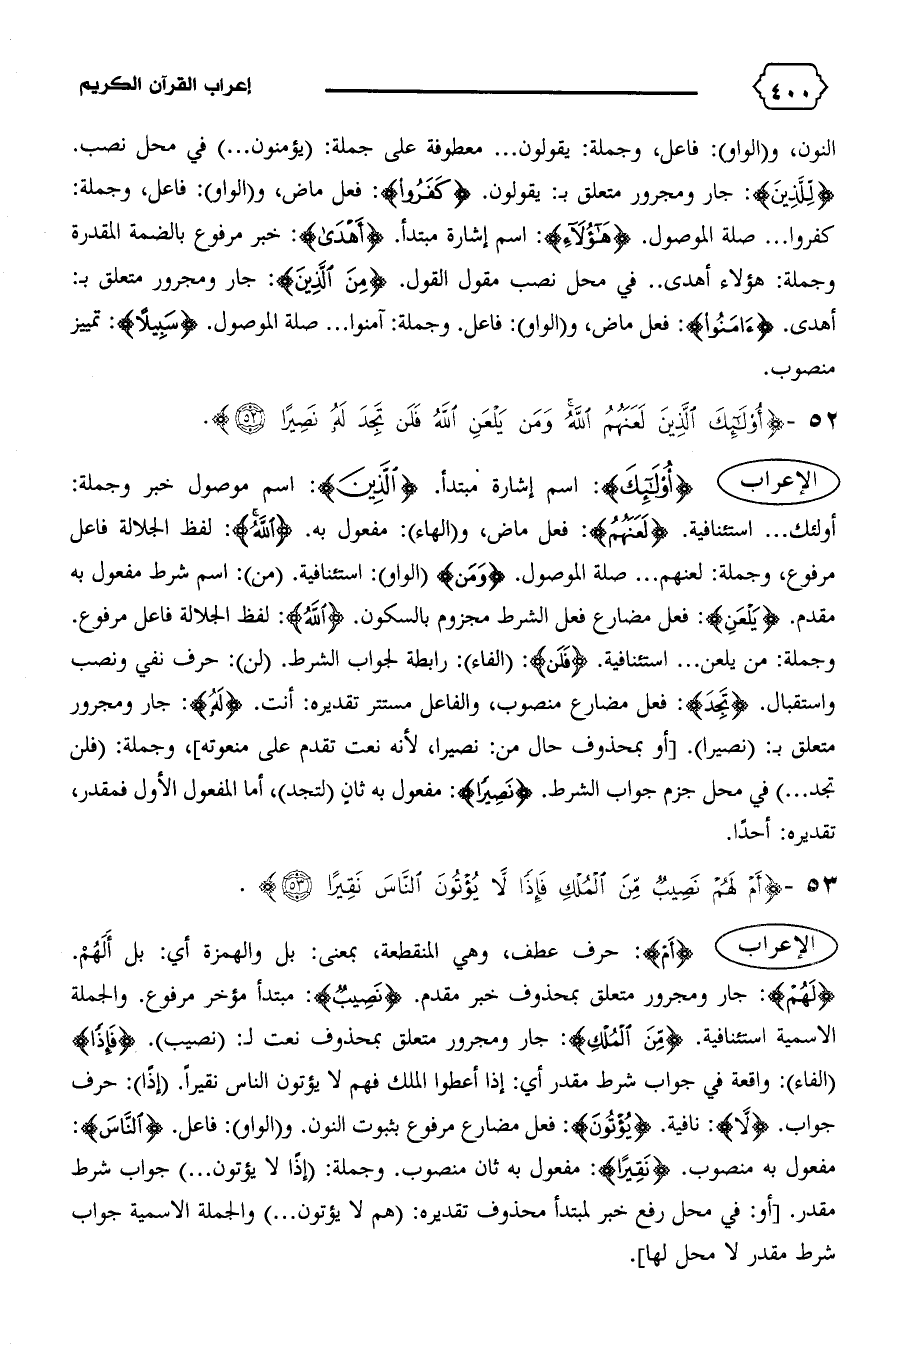 ٤٠٠ إعراب القرآن الكريم
النون، و(الواو): فاعل، وجملة: يقولون... معطوفة على جملة: (يؤمنون...) في محل نصب.
﴿لِلَّذِينَ﴾: جار ومجرور متعلق بـ: يقولون. ﴿كَفَرُوا۟﴾: فعل ماض، و(الواو): فاعل، وجملة:
كفروا... صلة الموصول. ﴿هَـٰٓؤُلَآءِ﴾: اسم إشارة مبتدأ. ﴿أَهْدَىٰ﴾: خبر مرفوع بالضمة المقدرة
وجملة: هؤلاء أهدى.. في محل نصب مقول القول. ﴿مِنَ ٱلَّذِينَ﴾: جار ومجرور متعلق بـ:
أهدى. ﴿ءَامَنُوا۟﴾: فعل ماض، و(الواو): فاعل. وجملة: آمنوا... صلة الموصول. ﴿سَبِيلًا﴾: تمييز
منصوب.
٥٢ -﴿أُو۟لَـٰٓئِكَ ٱلَّذِينَ لَعَنَهُمُ ٱللَّهُ ۖ وَمَن يَلْعَنِ ٱللَّهُ فَلَن تَجِدَ لَهُۥ نَصِيرًا ۝٥٢﴾.
الإعراب ﴿أُو۟لَـٰٓئِكَ﴾: اسم إشارة مبتدأ. ﴿ٱلَّذِينَ﴾: اسم موصول خبر وجملة:
أولئك... استئنافية. ﴿لَعَنَهُمُ﴾: فعل ماض، و(الهاء): مفعول به. ﴿ٱللَّهُ ۖ﴾: لفظ الجلالة فاعل
مرفوع، وجملة: لعنهم... صلة الموصول. ﴿وَمَن﴾ (الواو): استئنافية. (من): اسم شرط مفعول به
مقدم. ﴿يَلْعَنِ﴾: فعل مضارع فعل الشرط مجزوم بالسكون. ﴿ٱللَّهُ﴾: لفظ الجلالة فاعل مرفوع.
وجملة: من يلعن... استئنافية. ﴿فَلَن﴾: (الفاء): رابطة لجواب الشرط. (لن): حرف نفي ونصب
واستقبال. ﴿تَجِدَ﴾: فعل مضارع منصوب، والفاعل مستتر تقديره: أنت. ﴿لَهُۥ﴾: جار ومجرور
متعلق بـ: (نصيرا). [أو بمحذوف حال من: نصيرا، لأنه نعت تقدم على منعوته]، وجملة: (فلن
تجد...) في محل جزم جواب الشرط. ﴿نَصِيرًا﴾: مفعول به ثانٍ (لتجد)، أما المفعول الأول فمقدر،
تقديره: أحدًا.
٥٣ -﴿أَمْ لَهُمْ نَصِيبٌ مِّنَ ٱلْمُلْكِ فَإِذًا لَّا يُؤْتُونَ ٱلنَّاسَ نَقِيرًا ۝٥٣﴾.
الإعراب ﴿أَمْ﴾: حرف عطف، وهي المنقطعة، بمعنى: بل والهمزة أي: بل أَلَهُمْ.
﴿لَهُمْ﴾: جار ومجرور متعلق بمحذوف خبر مقدم. ﴿نَصِيبٌ﴾: مبتدأ مؤخر مرفوع. والجملة
الاسمية استئنافية. ﴿مِّنَ ٱلْمُلْكِ﴾: جار ومجرور متعلق بمحذوف نعت لـ: (نصيب). ﴿فَإِذًا﴾
(الفاء): واقعة في جواب شرط مقدر أي: إذا أعطوا الملك فهم لا يؤتون الناس نقيراً. (إذًا): حرف
جواب. ﴿لَّا﴾: نافية. ﴿يُؤْتُونَ﴾: فعل مضارع مرفوع بثبوت النون. و(الواو): فاعل. ﴿ٱلنَّاسَ﴾:
مفعول به منصوب. ﴿نَقِيرًا﴾: مفعول به ثان منصوب. وجملة: (إذًا لا يؤتون...) جواب شرط
مقدر. [أو: في محل رفع خبر لمبتدأ محذوف تقديره: (هم لا يؤتون...) والجملة الاسمية جواب
شرط مقدر لا محل لها].